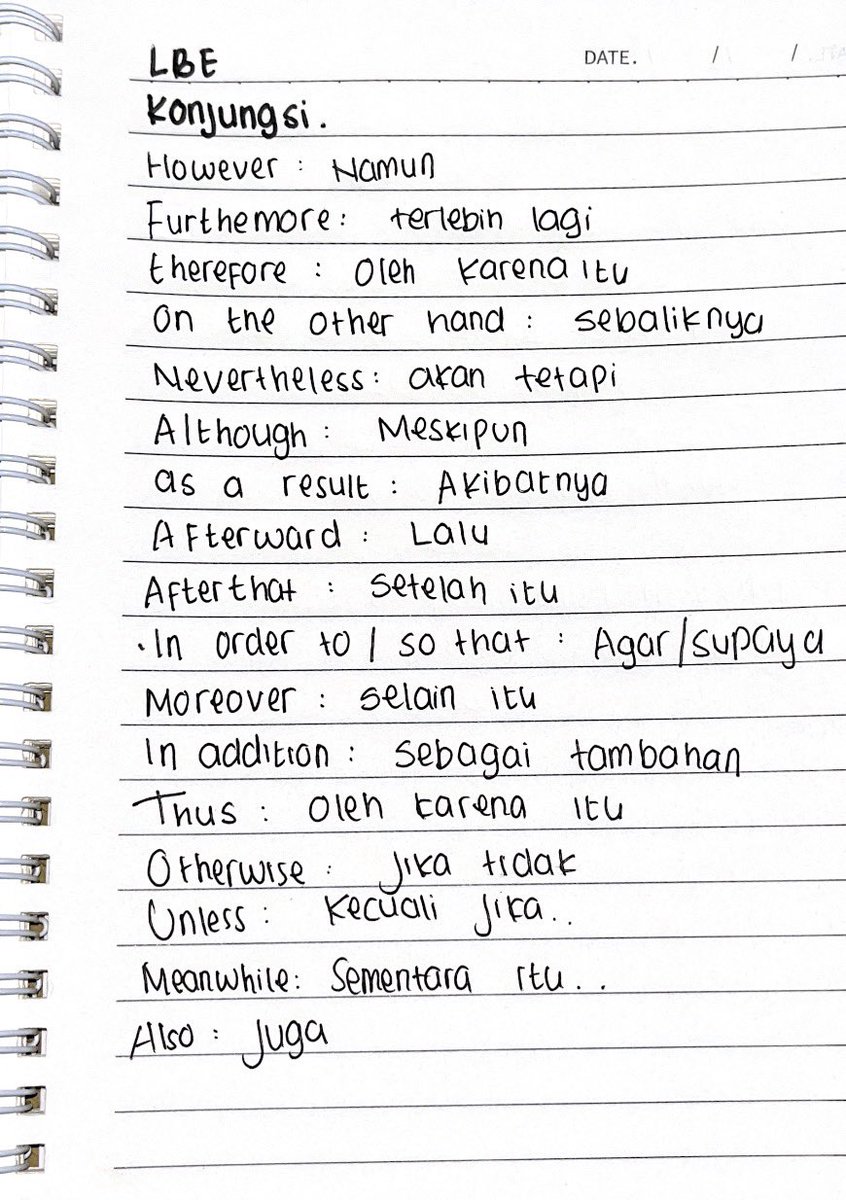 LBE
DATE. / /
Konjungsi.
However : Namun
Furthemore : terlebih lagi
therefore : Oleh karena itu
On the other hand : sebaliknya
Nevertheless : akan tetapi
Although : Meskipun
as a result : Akibatnya
Afterward : Lalu
After that : setelah itu
. In order to / so that : Agar/supaya
Moreover : selain itu
In addition : sebagai tambahan
Thus : Oleh karena itu
Otherwise : jika tidak
Unless : kecuali jika..
Meanwhile : Sementara itu..
Also : juga